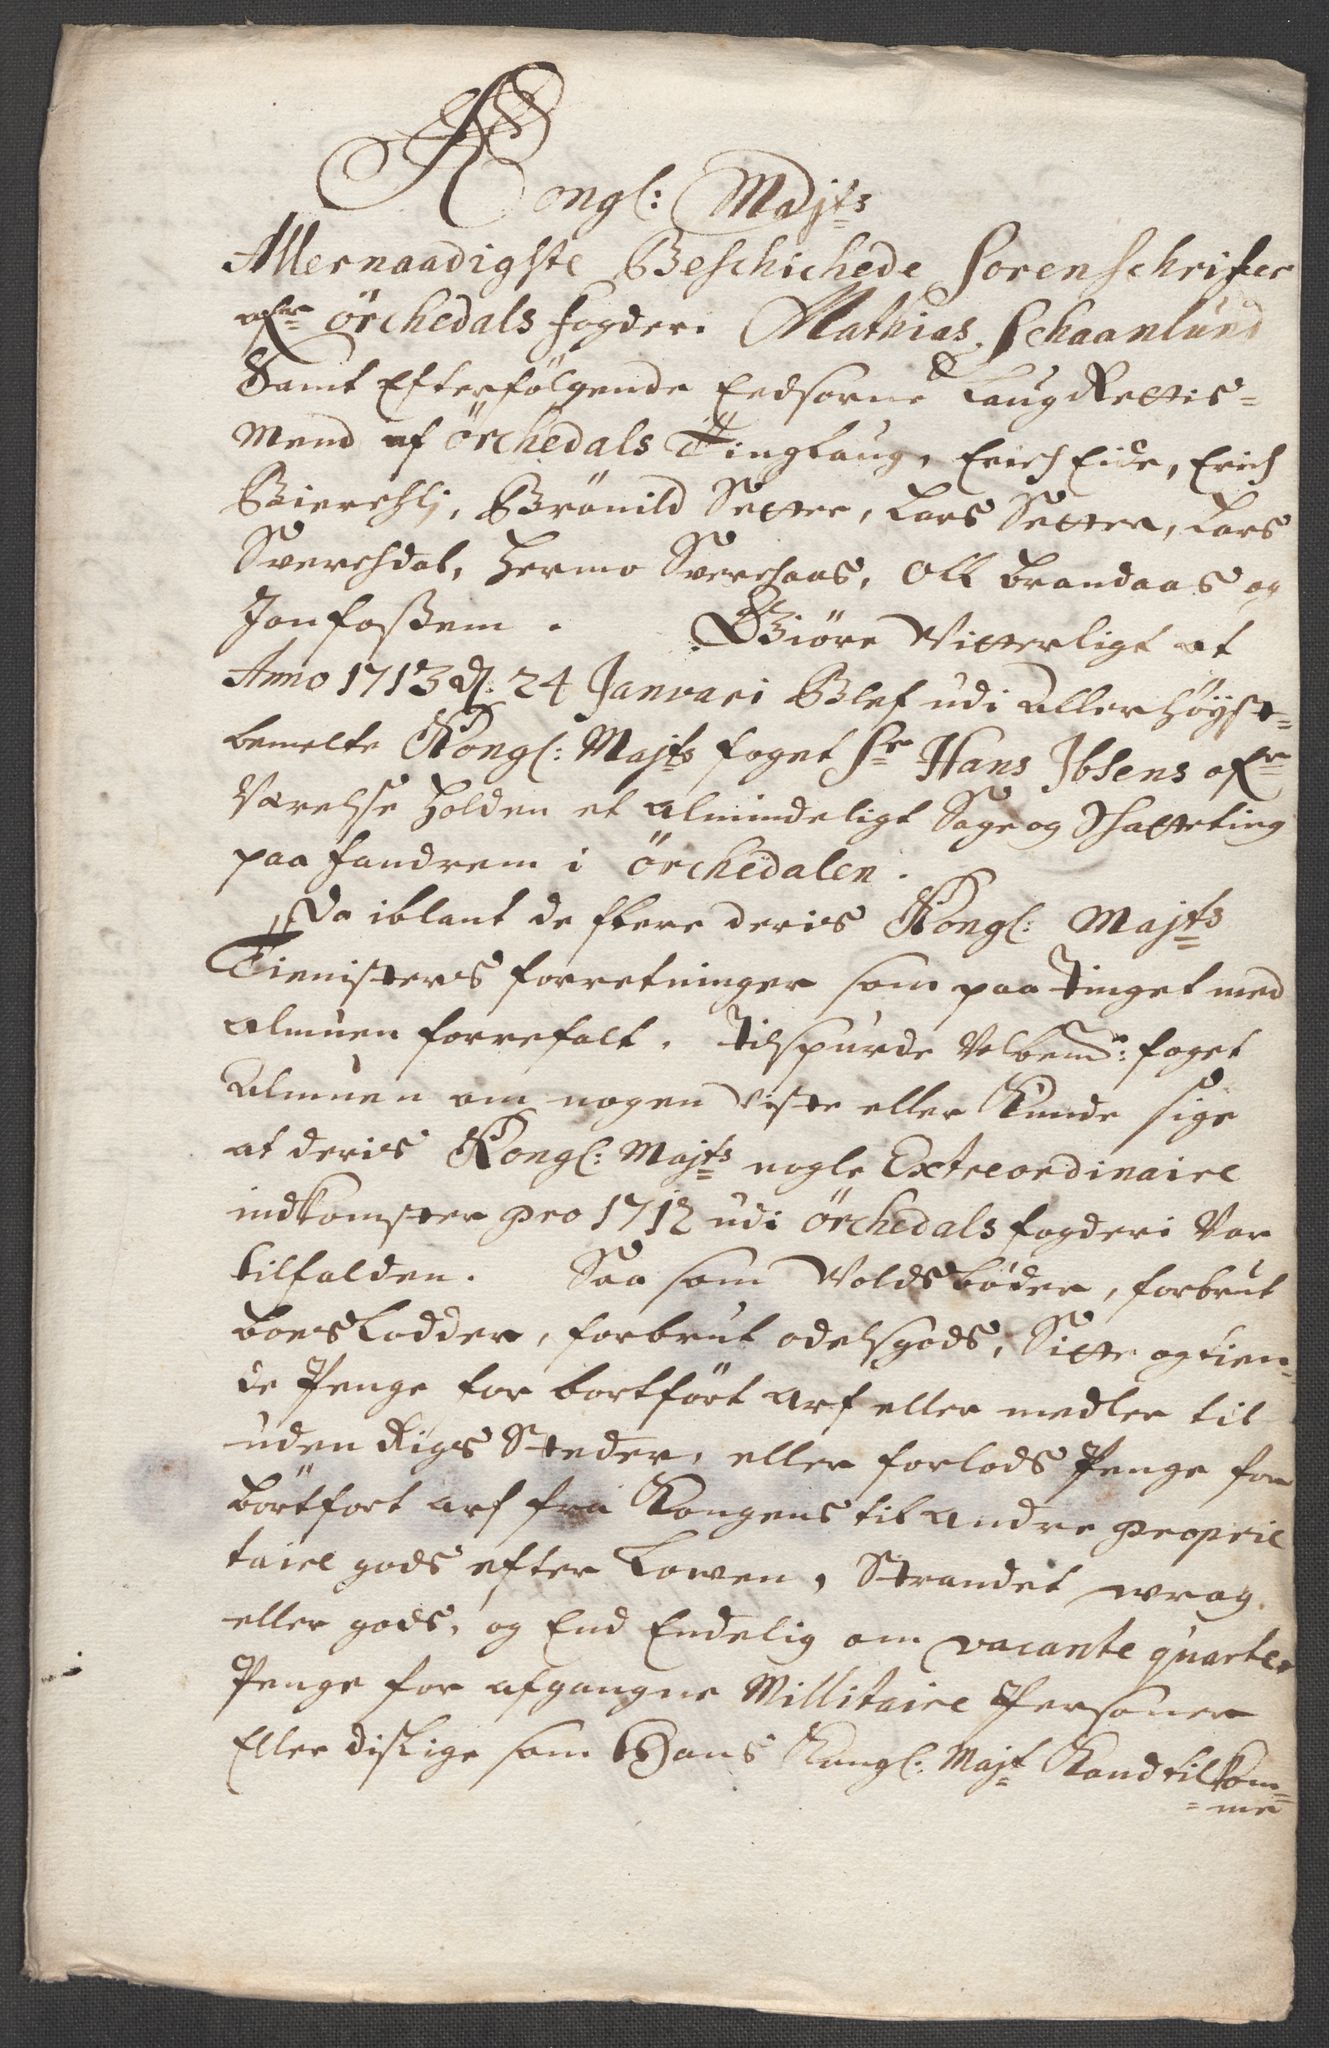 Kongl: Majts
Allernaadigste Beschichede Sorenschrifver
ofr Örchedals fogderi Mathias Schaanlund
Samt Efterfölgende Eedsorne LaugRettis=
Mend af Örchedals Tinglaug, Erich Eide, Erich
Bierchlj, Brönild Setter, Lars Setter, Lars
Sverchdal, Hermo Sverchaas, Oll Brandaas og
Jon fossem. Giöre Vitterligt at
Anno 1713 d: 24 Januari Blef udi allerhöyst=
bemelte Kongl: Majts foget Sr Hans Ibsens ofr
Værelse Holden et almindeligt Sage og Schatteting
paa fandrem i Örchedalen.
Da iblant de flere deris Kongl: Majts
Tienisters forretninger som paa Tinget med
almuen forrefalt. Tilspurde Velbemte: foget
Almuen om nogen viste eller Kunde sige
at deris Kongl: Majts nogle Extreordinaire
indkomster pro 1712 udi Örchedals fogderi Var
tilfalden. Saa som Voldsböder, forbrut
boeslodder, forbrut odelsgods, Sitte og tien=
de Penge for bortfört arf eller medler til
uden Rigs Steder, eller forlods Penge for
börtfort arf fra Kongens til andre proprie
taire gods efter Lowen, Strandet wrag
eller gods, og End Endelig om vacante quarter
Penge for afgangne Millitaire Personer
Eller dislige som Hans Kongl: Majt Kand tilkom=
=me